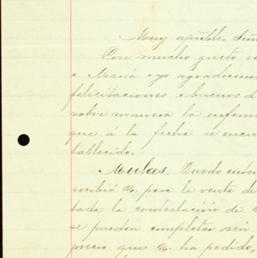 Muy apble. Señ
Con mucho gusto
e María y yo agradecemos
felicitaciones e buenos d
sobre manera la enferme
que á la fecha se encu
tablecido.
Mulas. Quedo ent
recibió U. para la venta de
dada la contestación de
se pueden completar seis
precio que U. ha pedido,